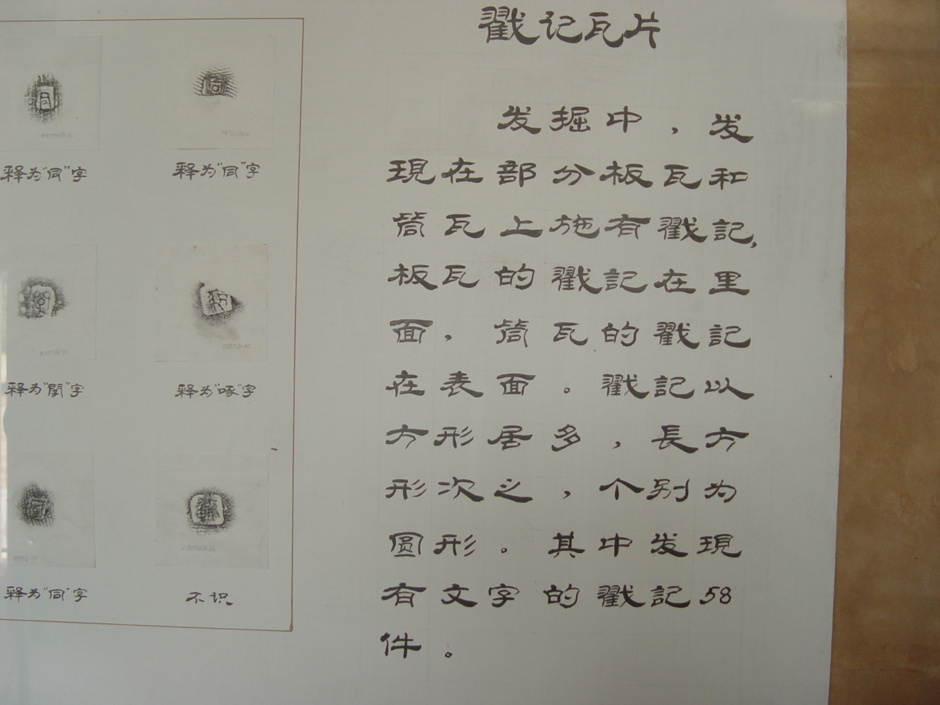 戳记瓦片
发掘中，发
現在部分板瓦和
筒瓦上施有戳記，
板瓦的戳記在里
面，筒瓦的戳記
在表面。戳記以
方形居多，長方
形次之，个别为
圆形。其中发現
有文字的戳記58
件。
释为"同"字
释为"闾"字
释为"啄"字
释为"同"字
不识